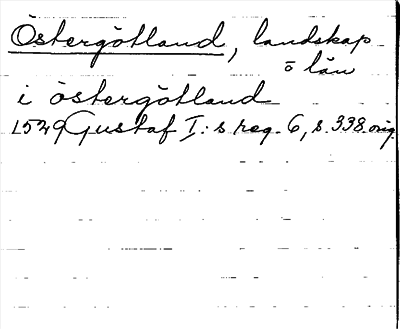 Östergötland, landskap
o län
i östergötland
1529 Gustaf I:s reg. 6, s. 338. orig.